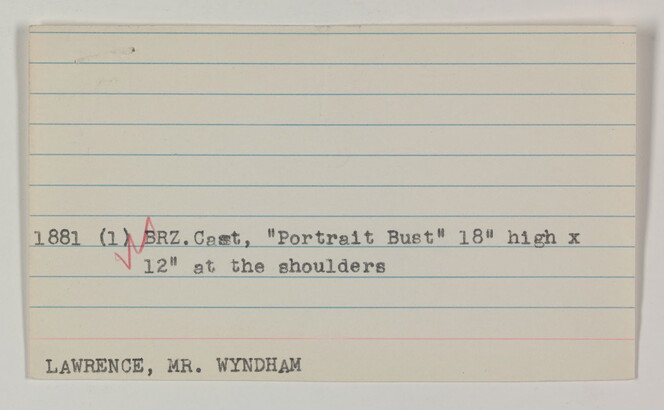 1881 (1) BRZ.Cast, "Portrait Bust" 18" high x
12" at the shoulders
LAWRENCE, MR. WYNDHAM